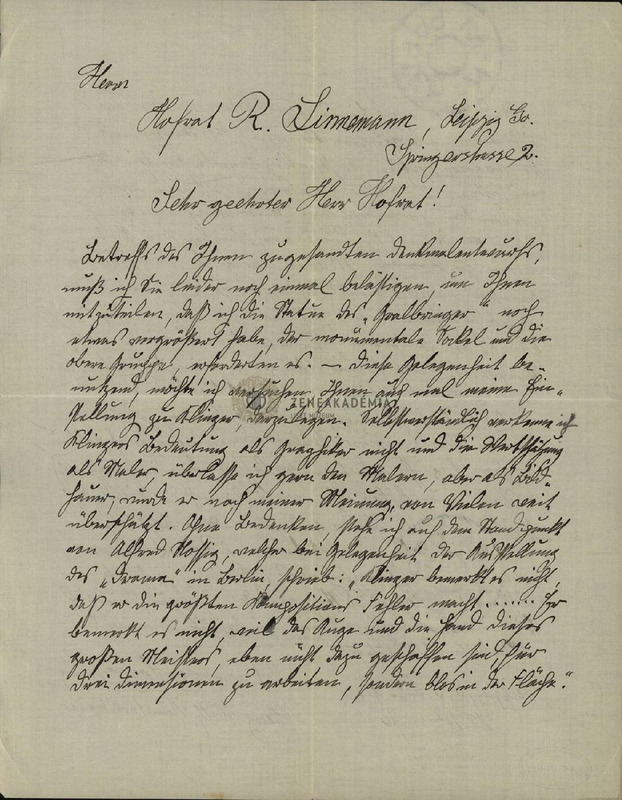 Herrn
Hofrat R. Linnemann, Leipzig Go.
Springerstrasse 2.
Sehr geehrter Herr Hofrat!
Betreffs des Ihnen zugesandten Denkmalentwurfs,
muß ich Sie leider noch einmal belästigen, um Ihnen
mitzuteilen, daß ich die Statue des „Gralbringer" noch
etwas vergrößert habe, der monumentale Sockel und die
obere Gruppe, erforderten es. — Diese Gelegenheit be-
nutzend, möchte ich versuchen Ihnen auch mal meine Ein-
stellung zu Klinger darzulegen. Selbstverständlich verkenne ich
Klingers Bedeutung als Graphiker nicht und die Wertschätzung
als Maler überlasse ich gern den Malern, aber als Bild-
hauer, wurde er nach meiner Meinung, von Vielen weit
überschätzt. Ohne Bedenken, stehe ich auf dem Standpunkt
von Alfred Nossig, welcher bei Gelegenheit der Ausstellung
des „Drama" in Berlin, schrieb: „Klinger bemerkt es nicht,
daß er die größten Kompositions Fehler macht ...... Er
bemerkt es nicht, weil das Auge und die Hand dieses
großen Meisters, eben nicht dazu geschaffen sind, für
drei Dimensionen zu arbeiten, sondern blos in der Fläche."
ZENEAKADÉMIA